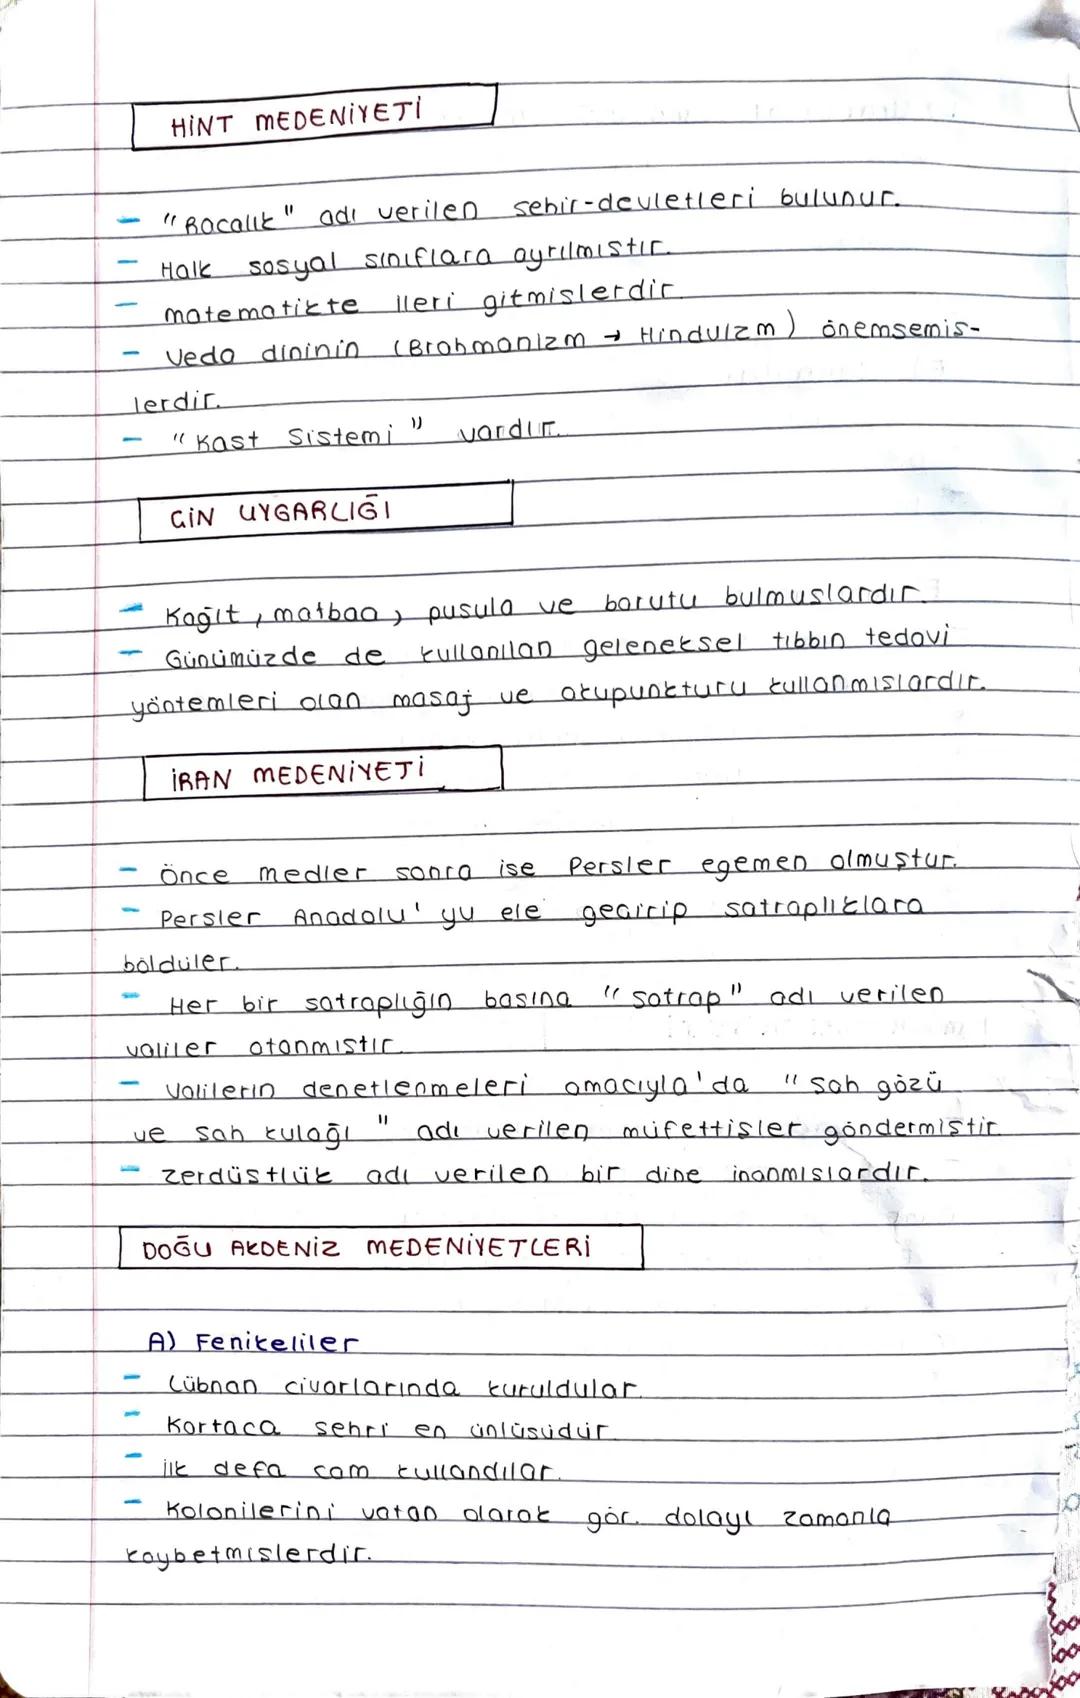 HİNT MEDENİYETİ
- "Racalık" adı verilen sehir-devletleri bulunur.
- Halk sosyal sınıflara ayrılmıstır.
- matematikte ileri gitmislerdir.
- Veda dininin (Brahmanizm → Hinduizm) önemsemis-
lerdir.
- "Kast Sistemi" vardır.
ÇİN UYGARLIĞI
- Kağıt, matbaa, pusula ve barutu bulmuslardır.
- Günümüzde de kullanılan geleneksel tıbbın tedavi
yöntemleri olan masaj ve akupunkturu kullanmıslardır.
İRAN MEDENİYETİ
- Önce medler sonra ise Persler egemen olmuştur.
- Persler Anadolu'yu ele geçirip satraplıklara
bölduler.
- Her bir satraplığın basına "satrap" adı verilen
valiler atanmıstır.
- Valilerin denetlenmeleri amacıyla'da "sah gözü
ve sah kulağı" adı verilen müfettişler göndermiştir.
- Zerdüstlük adı verilen bir dine inanmıslardır.
DOĞU AKDENİZ MEDENİYETLERİ
A) Fenikeliler
- Lübnan civarlarında kuruldular.
- Kartaca sehri en ünlüsüdür.
- ilk defa cam kullandılar.
- Kolonilerini vatan olarak gör. dolayı zamanla
kaybetmislerdir.